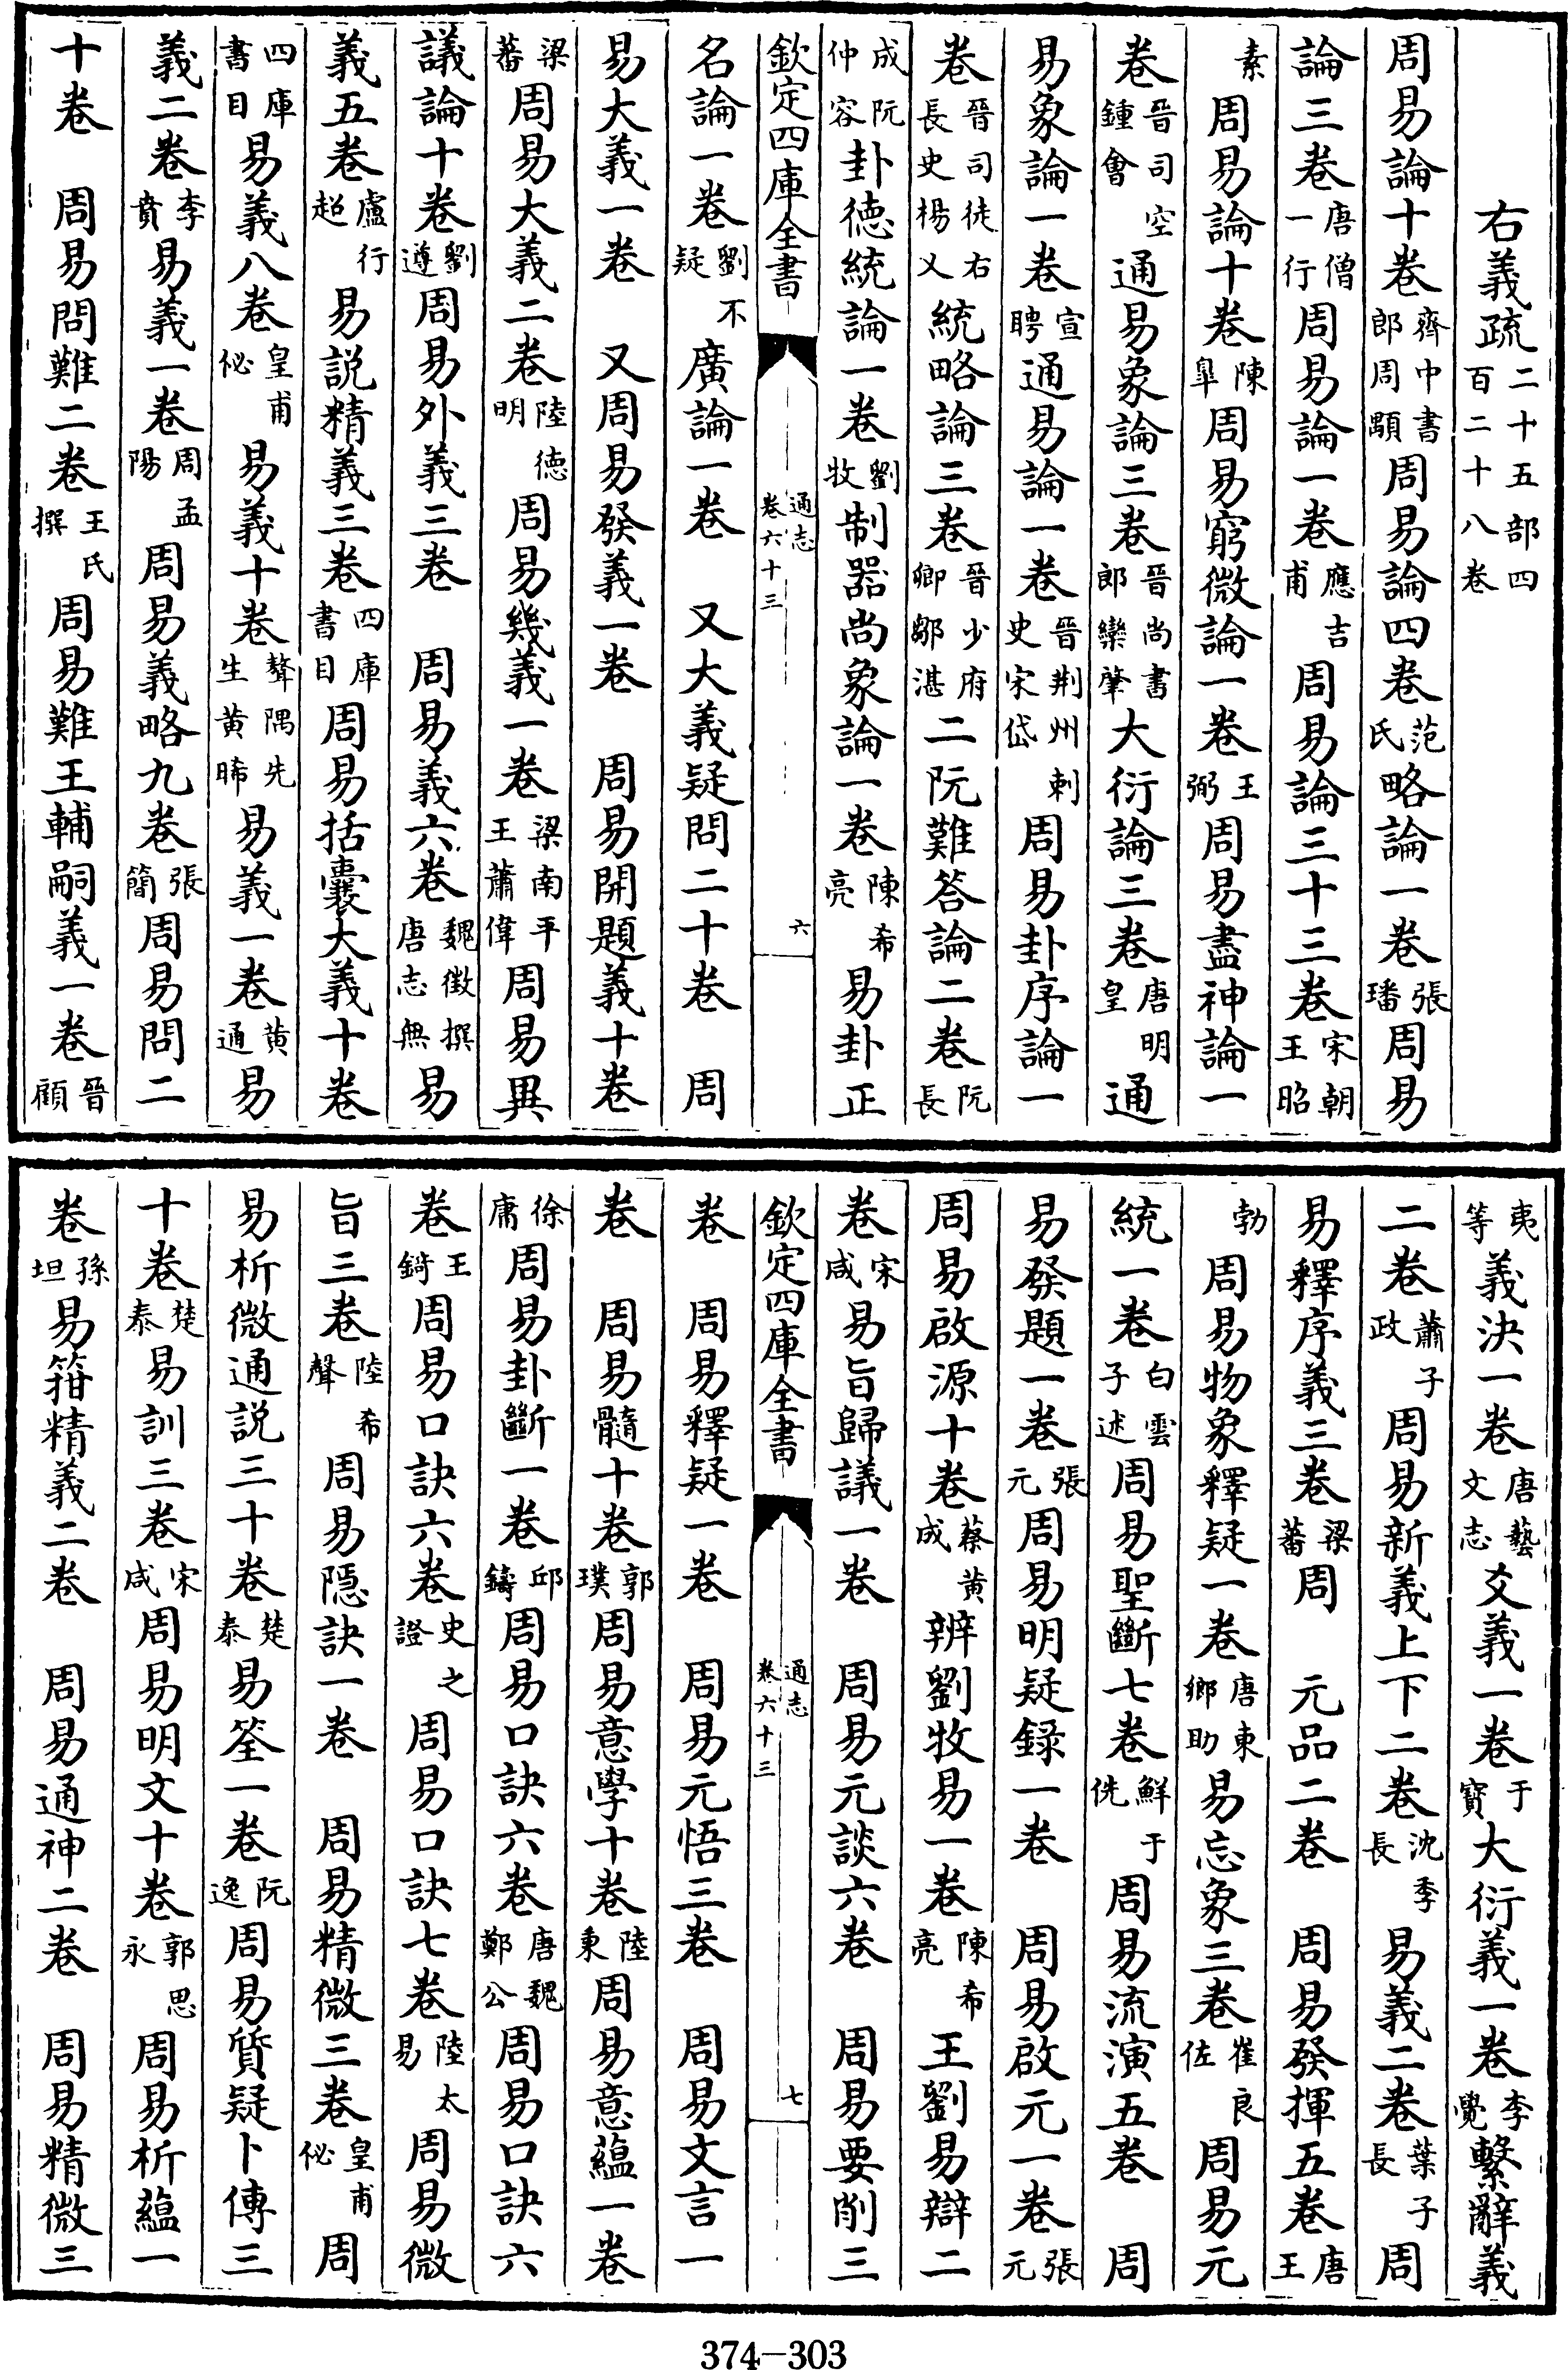 右義疏二十五部四百二十八卷
周易論十卷齊中書郎周顒周易論四卷范氏略論一卷張璠周易
論三卷唐僧一行周易論一卷應吉甫周易論三十三卷宋朝王昭
素周易論十卷陳臯周易窮微論一卷王弼周易盡神論一
卷晉司空鍾會通易象論三卷晉尚書郎欒肇大衍論三卷唐明皇通
易象論一卷宣聘通易論一卷晉荆州刺史宋岱周易卦序論一
卷晉司徒右長史楊乂統略論三卷晉少府卿鄒湛二阮難答論二卷阮長
成阮仲容卦德統論一卷劉牧制器尚象論一卷陳希亮易卦正
欽定四庫全書 通志卷六十三 六
名論一卷劉不疑廣論一卷 又大義疑問二十卷 周
易大義一卷 又周易發義一卷 周易開題義十卷
梁蕃周易大義二卷陸德明周易幾義一卷梁南平王蕭偉周易異
議論十卷劉遵周易外義三卷 周易義六卷魏徵撰唐志無易
義五卷盧行超易説精義三卷四庫書目周易括囊大義十卷
四庫書目易義八卷皇甫佖易義十卷聱隅先生黄晞易義一卷黄通易
義二卷李賁易義一卷周孟陽周易義略九卷張簡周易問二
十卷 周易問難二卷王氏撰周易難王輔嗣義一卷晉顧
夷等義決一卷唐藝文志爻義一卷于寳大衍義一卷李覺繫辭義
二卷蕭子政周易新義上下二卷沈季長易義二卷葉子長周
易釋序義三卷梁蕃周 元品二卷 周易發揮五卷唐王
勃周易物象釋疑一卷唐東鄉助易忘象三卷崔良佐周易元
統一卷白雲子述周易聖斷七卷鮮于侁周易流演五卷 周
易發題一卷張元周易明疑録一卷 周易啟元一卷張元
周易啟源十卷蔡黄成辨劉牧易一卷陳希亮王劉易辯二
卷宋咸易旨歸議一卷 周易元談六卷 周易要削三
欽定四庫全書 通志卷六十三 七
卷 周易釋疑一卷 周易元悟三卷 周易文言一
卷 周易髓十卷郭璞周易意學十卷陸秉周易意蘊一卷
徐庸周易卦斷一卷邱鑄周易口訣六卷唐魏鄭公周易口訣六
卷王錡周易口訣六卷史之證周易口訣七卷陸太易周易微
旨三卷陸希聲周易隠訣一卷 周易精微三卷皇甫佖周
易析微通説三十卷楚泰易筌一卷阮逸周易質疑卜傳三
十卷楚泰易訓三卷宋咸周易明文十卷郭思永周易析蘊一
卷孫坦易箝精義二卷 周易通神二卷 周易精微三
374—303